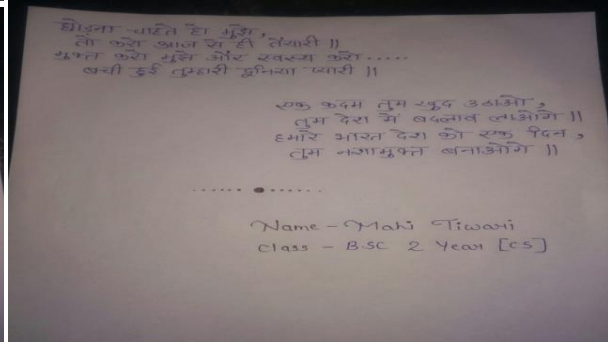 छोड़ना चाहते हो मुझे,
तो करो आज से ही तैयारी ||
मुक्त करो मुझे और स्वस्थ करो.....
बची हुई तुम्हारी दुनिया प्यारी ||
एक कदम तुम खुद उठाओ,
तुम देश में बदलाव लाओगे ||
हमारे भारत देश को एक दिन,
तुम नशामुक्त बनाओगे ||
Name - Mahi Tiwari
Class - B.SC 2 Year [CS]